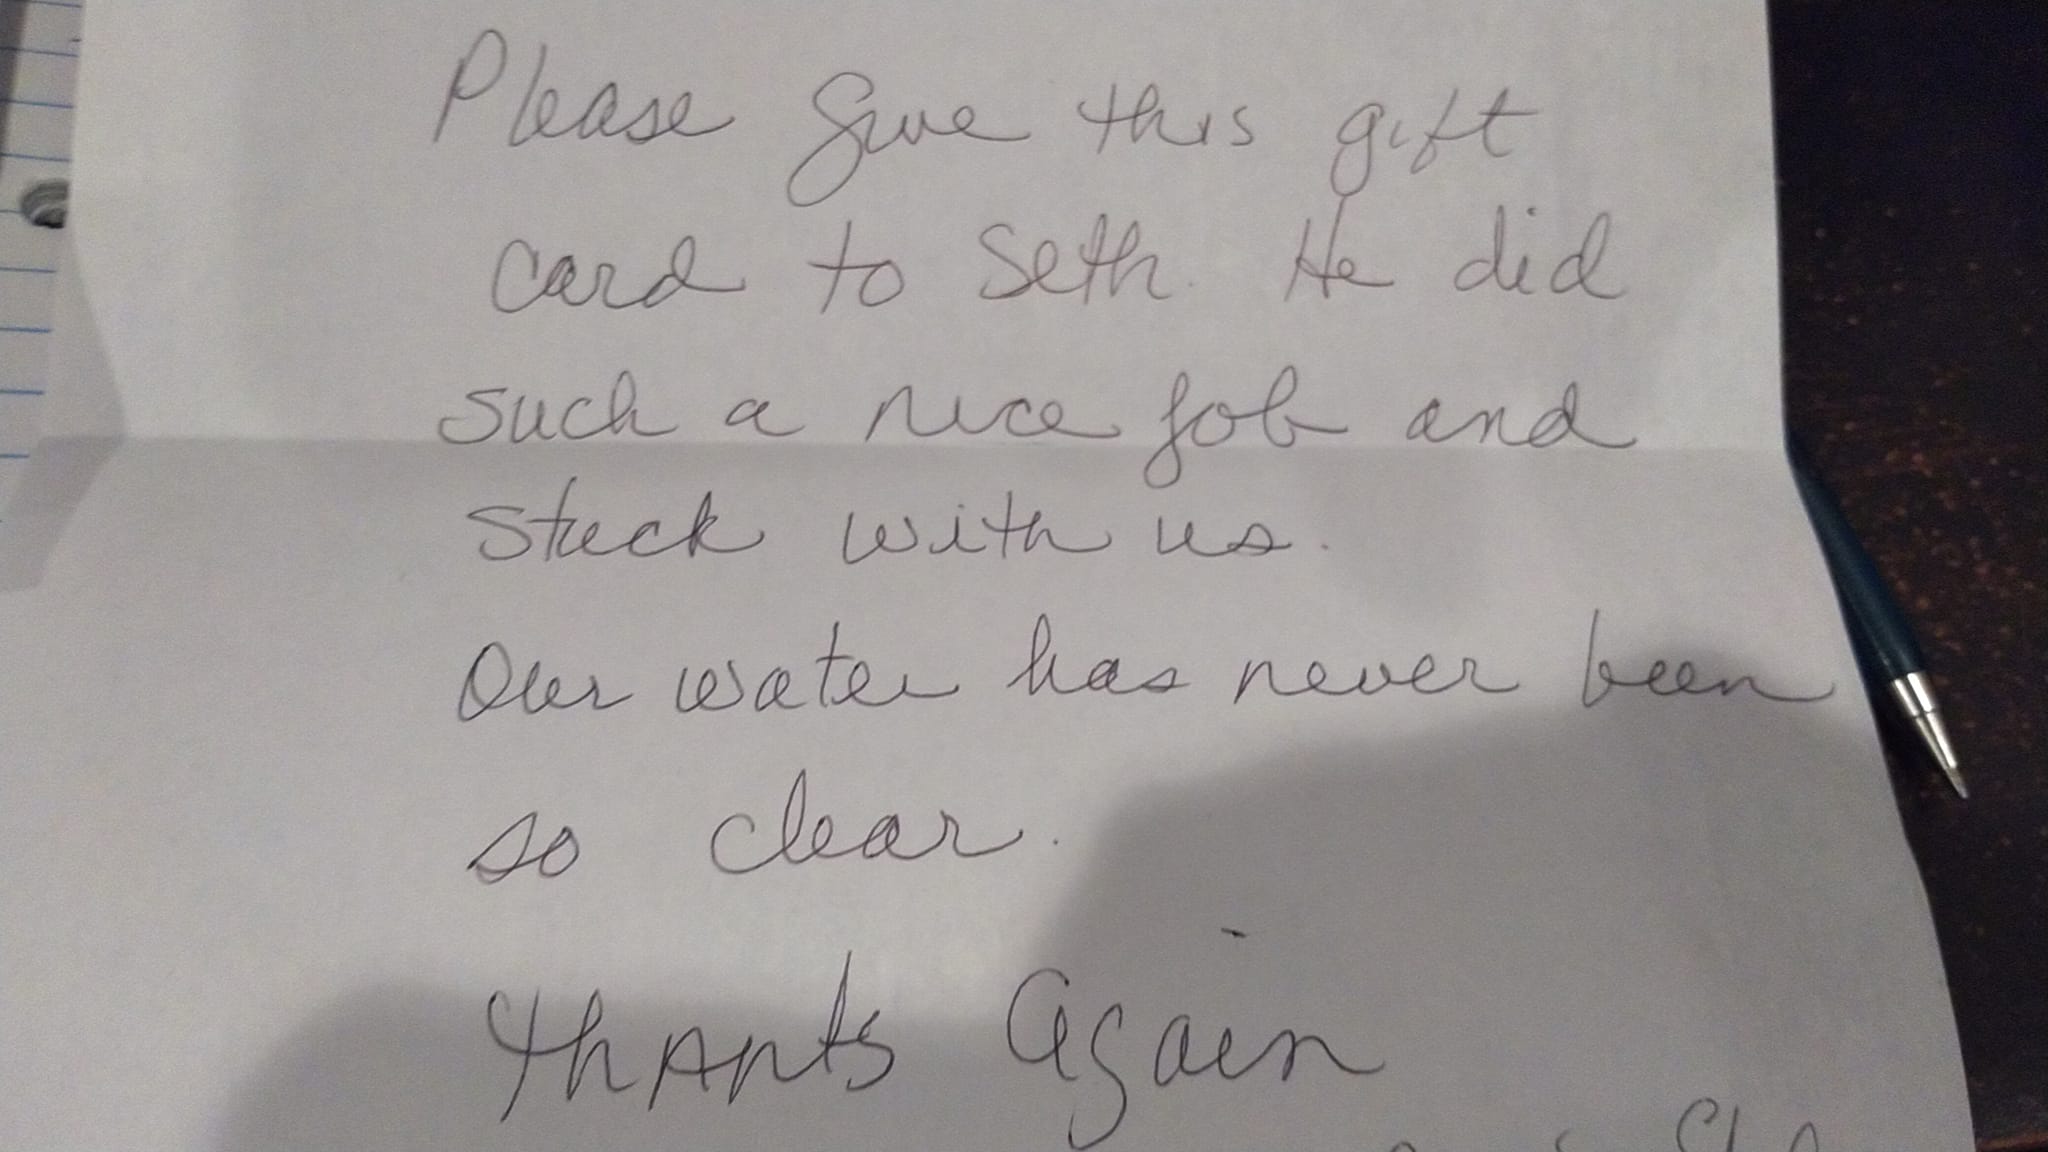 Please give this gift
card to Seth. He did
such a nice job and
stuck with us.
Our water has never been
so clear.
Thanks Again